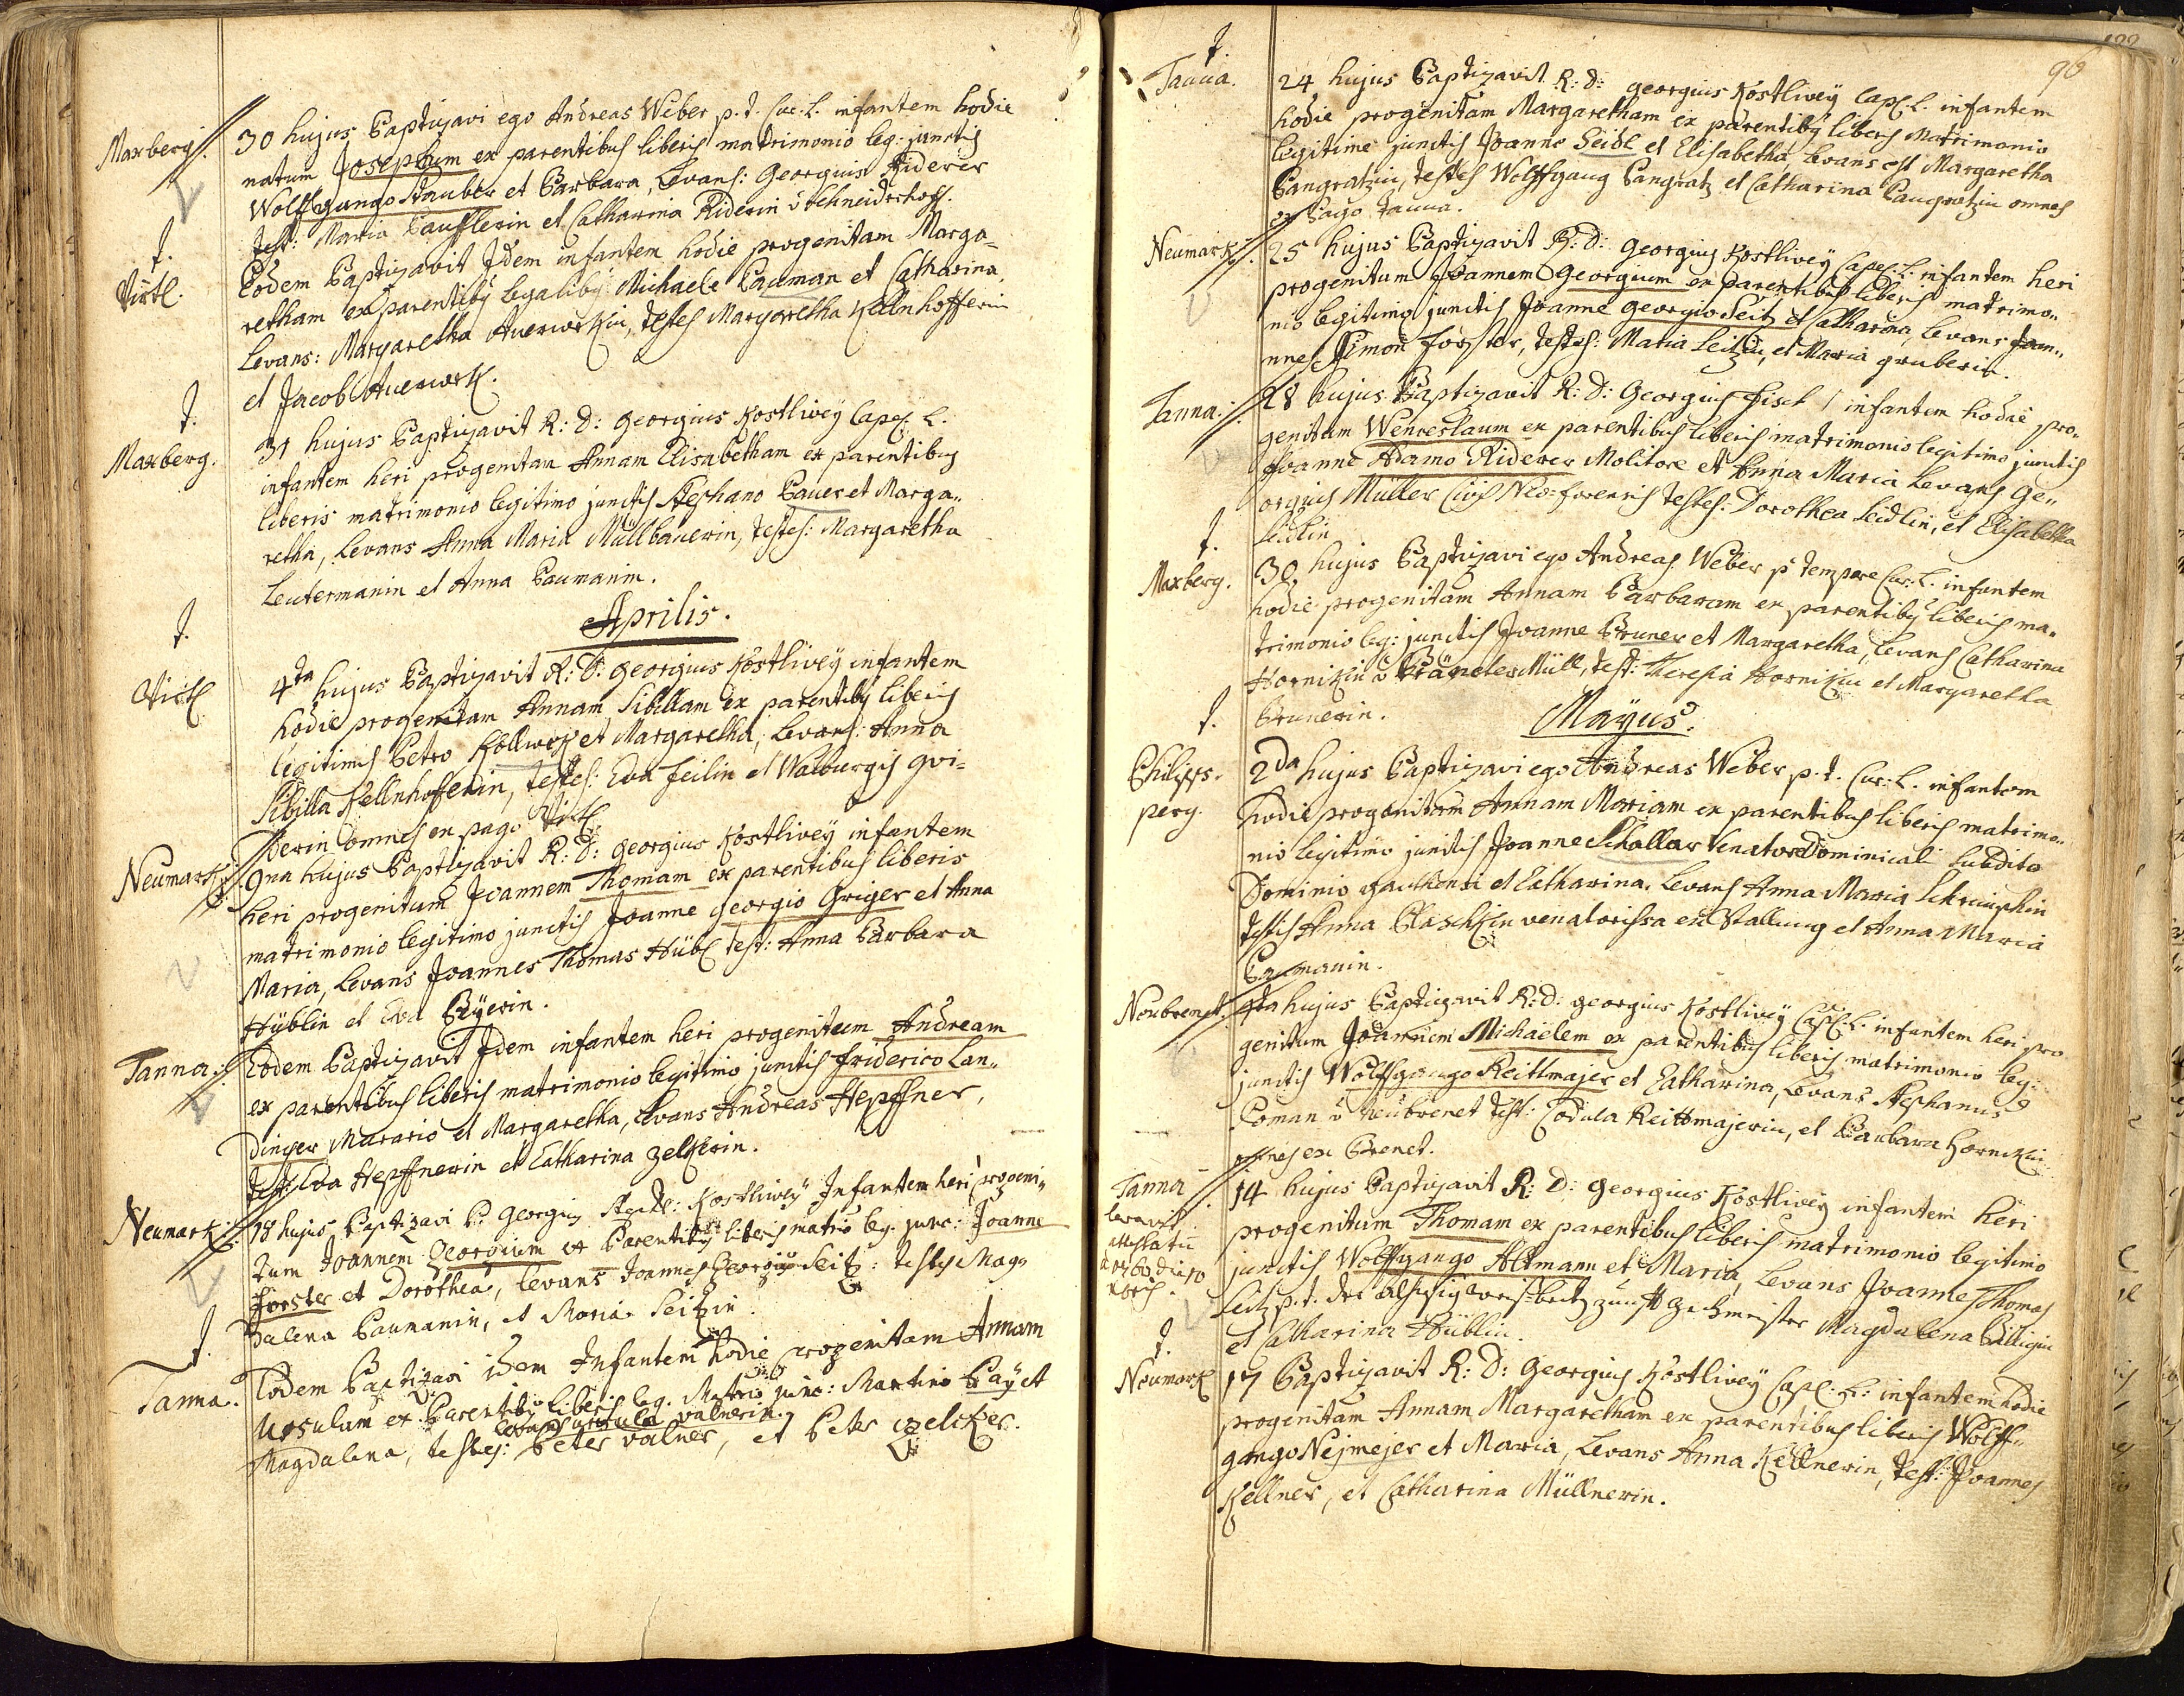 Maxberg
30 hujus Baptizavi ego Andreas Weber p. t. Cur. L. infantem hodie
natum Josephum ex parentibus liberis matrimonio leg: junctis
Wolffgango Stauber et Barbara, Levans: Georgius Riderer
Test: Maria et Catharina Riderin
†.
Virtl.
Eodem Baptizavit Idem infantem hodie progenitam Marga=
retham ex parentibq legalibq Michaele Bauman et Catharina
Levans: Margaretha testes Margaretha Kellnhofferin
et Jacob
†.
Maxberg.
31 hujus Baptizavit R: D: Georgius Kostlivey Capel. L.
infantem heri progenitam Annam Elisabetham ex parentibus
liberis matrimonio legitimo junctis Stephano Bauer et Marga„
retha, Levans Anna Maria Müllbauerin, testes: Margaretha
Leutermanin et Anna Baumanin.
Aprilis.
†.
Virtl
4ta hujus Baptizavit R: D: Georgius Kostlivey infantem
hodie progenitam Annam Sibillam ex parentibq liberis
legitimis Petro et Margaretha, Levans: Anna
Sibilla Kellnhofferin, testes: Eva Feilin et Walburgis
omnes ex pago Virtl
Neumark:
9na hujus Baptizavit R: D: Georgius Kostlivey infantem
heri progenitum Joannem Thomam ex parentibus liberis
matrimonio legitimo junctis Joanne Georgio Griger et Anna
Maria, Levans Joannes Thomas Hübl test: Anna Barbara
Hüblin et Eva
Tanna:
Eodem Baptizavit Idem infantem heri progenitum Andream
ex parentibus liberis matrimonio legitimo junctis Friderico Lan„
dinger Murario et Margaretha, Levans Andreas Hepffner,
test: Eva Hepffnerin et Catharina Zelkerin.
Neumark:
18 hujus Baptizavi P. Georgius Kostlivey Infantem heri progeni„
tum Joannem Georgium ex Parentibq liberis matrio leg. junc: Joanne
Forster et Dorothea, Levans Joannes Georgius Seitz: testes Mag„
dalena Baumanin, et Maria Seitzin.
†.
Tanna.
Eodem Baptizavi idem Infantem hodie progenitam Annam
Ursulam ex Parentibq liberis leg. Matrio junc: Martino Bay et
Levans Ursula Valnerin.
Magdalena, testes: Peter Valner, et Peter Zelcker.
90
†.
Tanna.
24 hujus Baptizavit R: D: Georgius Kostlivey Capel. L. infantem
hodie progenitam Margaretham ex parentibq liberis Matrimonio
legitime junctis Joanne Seidl et Elisabetha, Levans est Margaretha
Pangratzin, testes Wolffgang Pangratz et Catharina Pangratzin omnes
ex Pago Tanna.
Neumark:
25 hujus Baptizavit R: D: Georgius Kostlivey Capel. L. infantem heri
progenitum Joannem Georgium ex parentibus liberis matrimo„
nio legitimo junctis Joanne Georgio Seitz et Catharina, Levans Joan„
nnes Simon Forster, testes: Maria Seitzin, et Maria Gruberin.
Tanna:
28 hujus Baptizavit R: D: Georgius Fisch infantem hodie pro„
genitum Wenceslaum ex parentibus liberis matrimonio legitimo junctis
Joanne Adamo Riderer Molitore et Anna Maria Levans Ge„
orgius Müller Civis Neo=forensis testes: Dorothea Seidlin, et Elisabetha
Seidlin
†.
Maxberg.
30 hujus Baptizavi ego Andreas Weber p tempore Cur: L. infantem
hodie progenitam Annam Barbaram ex parentibq liberis ma„
trimonio leg: junctis Joanne Bruner et Margaretha, Levans Catharina
Hornikin test: Theresia Hornikin et Margaretha
Brunerin.
Mayus.
†.
Philips.
perg.
2da hujus Baptizavi ego Andreas Weber p. t. Cur: L. infantem
hodie progenitam Annam Mariam ex parentibus liberis matrimo„
nio legitimo junctis Joanne Schallar Venatore Dominicali subdito
Dominio et Catharina. Levans Anna Maria
testes Anna venatorissa ex Stallung et Anna Maria
Baumanin.
Neubrenet.
hujus Baptizavit R: D: Georgius Kostlivey Capel. L. infantem heri pro
genitum Joannem Michaelem ex parentibus liberis matrimonio leg:
junctis Wolffgango Reittmajer et Catharina, Levans Stephanus
neubrenet test: Codula Reittmajerin, et Barbara Hornikin
omnes ex Brenet.
Tanna
14 hujus Baptizavit R: D: Georgius Kostlivey infantem heri
progenitum Thomam ex parentibus liberis matrimonio legitimo
junctis Wolffgango Altmann et Maria, Levans Joanne Thomas
Seitz p. t. zunfft zechmeister Magdalena
et Catharina Hüblin.
†.
Neumark
17 Baptizavit R: D: Georgius Kostlivey Capel. L: infantem hodie
progenitam Annam Margaretham ex parentibus liberis Wolff„
gango Nejmejer et Maria, Levans Anna Kellnerin, test: Joannes
Kellner, et Catharina Müllnerin.